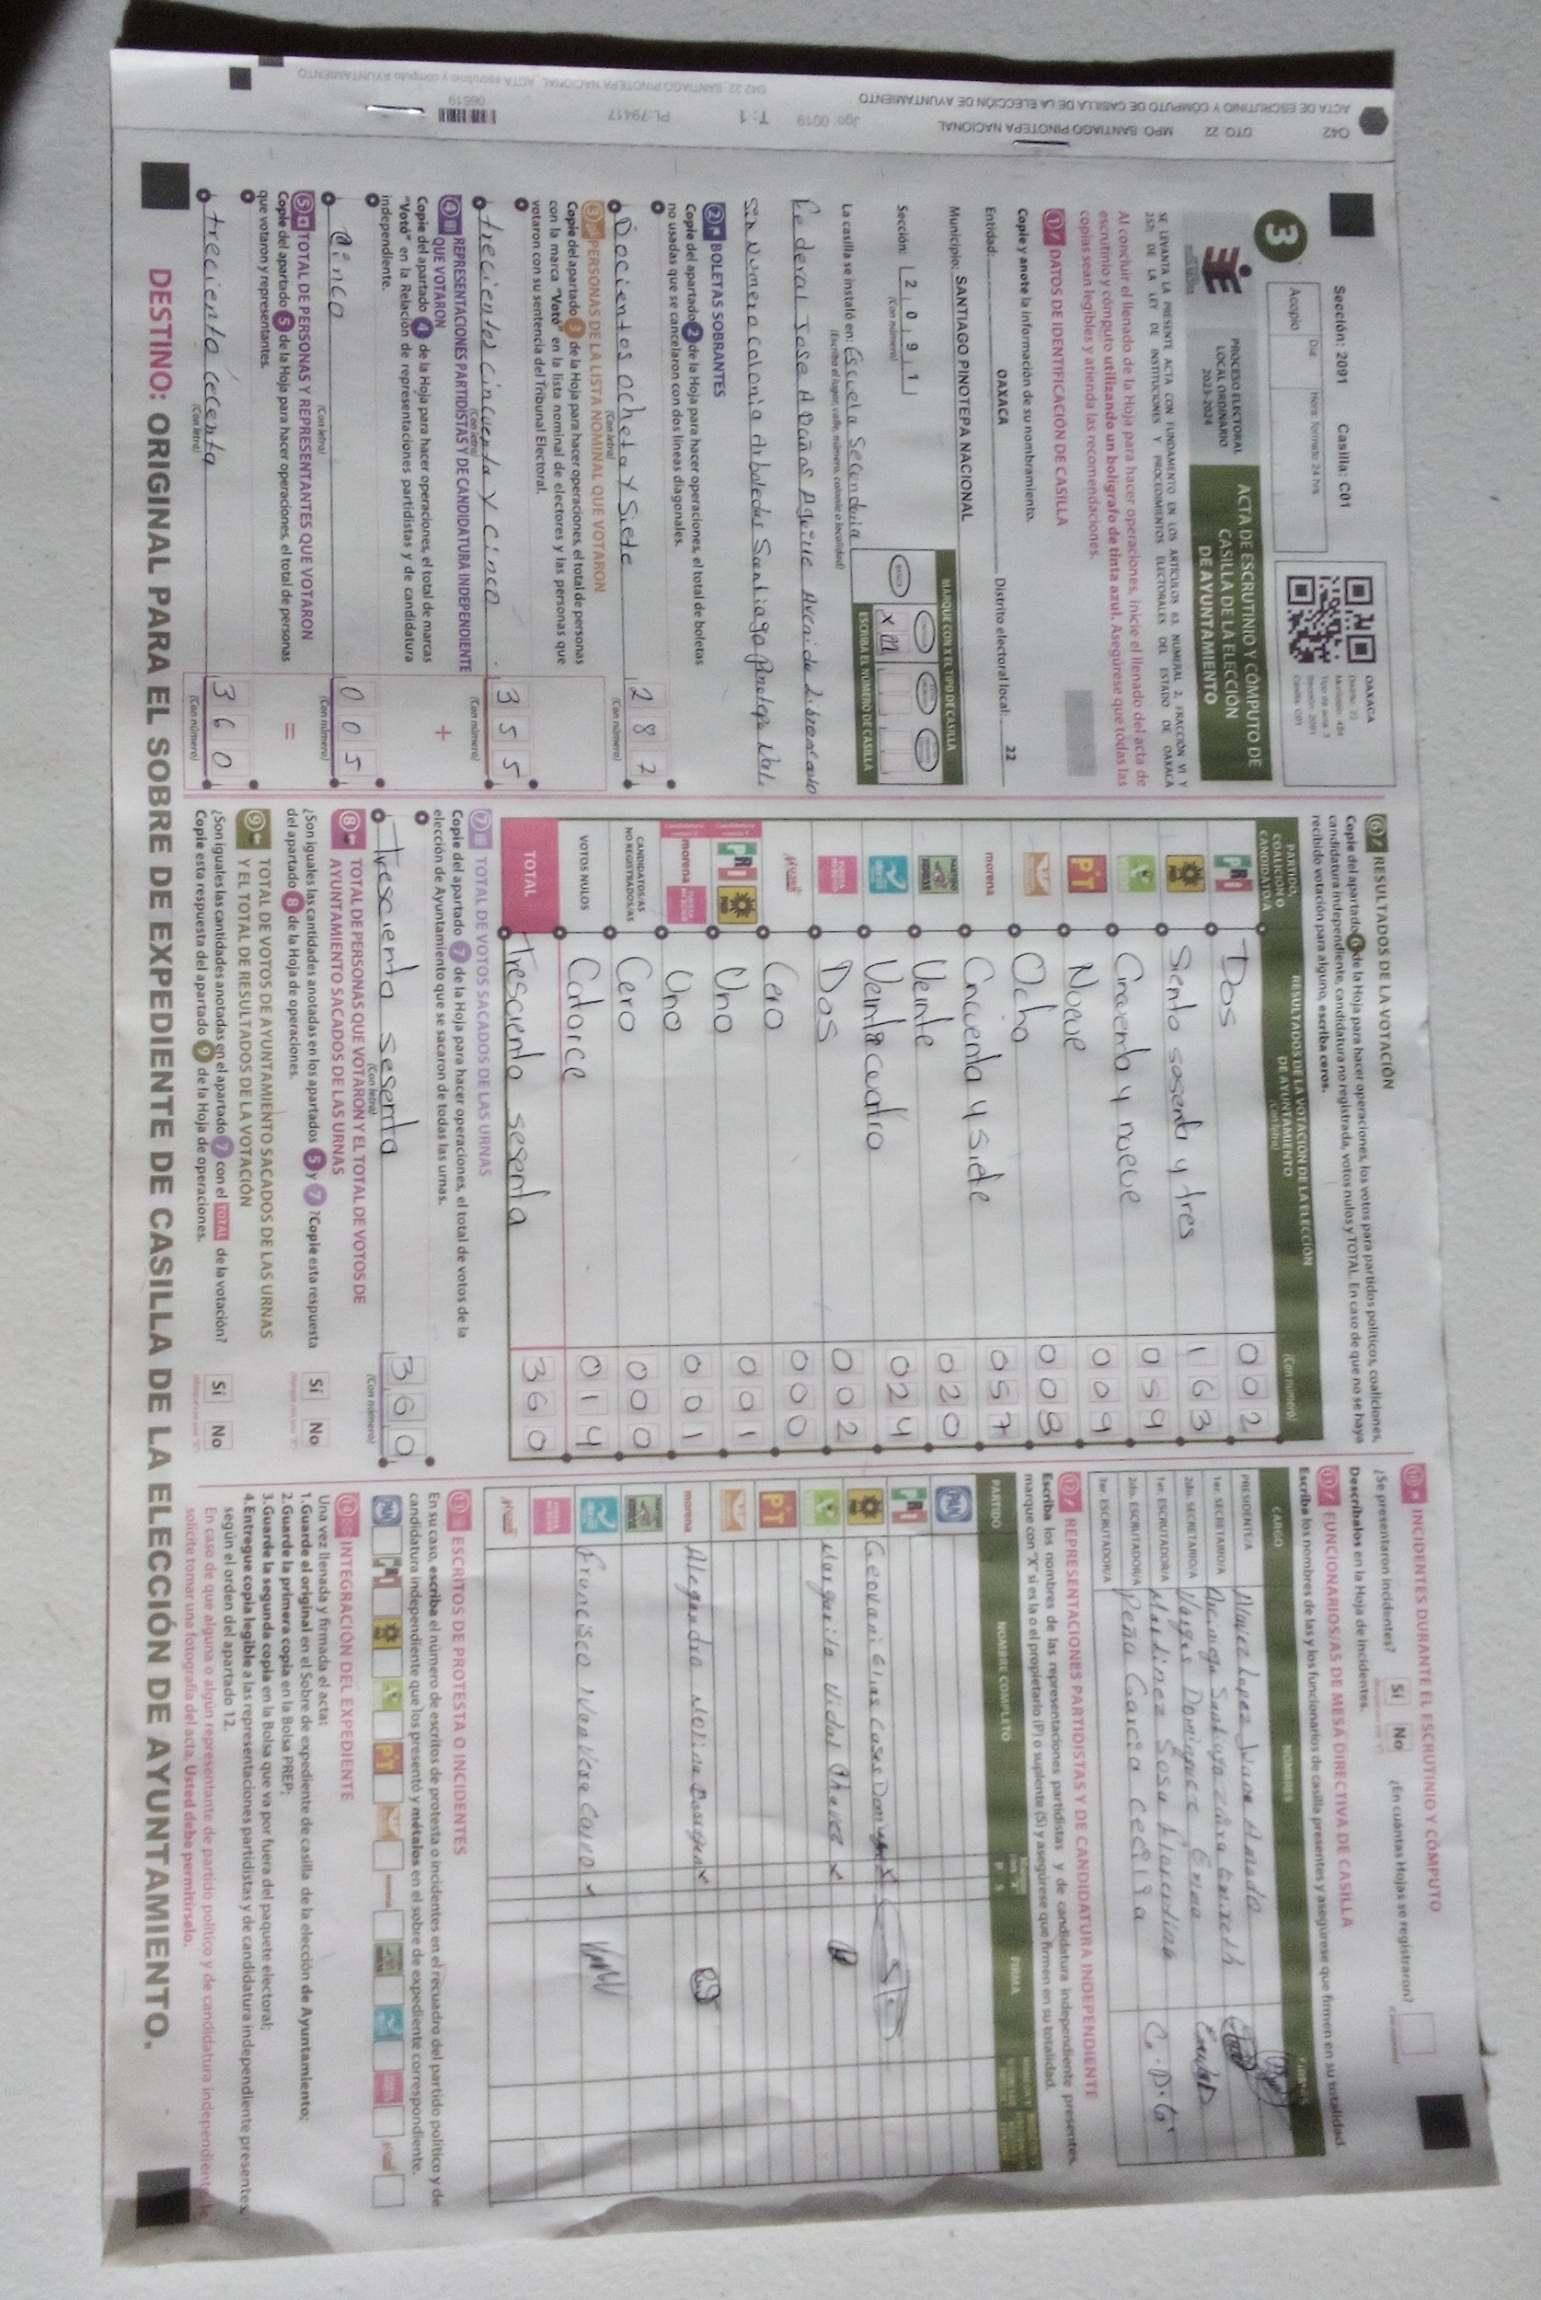 Sección: 2091 Casilla: C01
Acopio
Día:
Hora: formato 24 hrs
OAXACA
3
PROCESO ELECTORAL
LOCAL ORDINARIO
2023-2024
ACTA DE ESCRUTINIO Y CÓMPUTO DE
CASILLA DE LA ELECCIÓN
DE AYUNTAMIENTO
SE LEVANTA LA PRESENTE ACTA CON FUNDAMENTO EN LOS ARTÍCULOS 83, NUMERAL 2, FRACCIÓN VI Y
DE LA LEY DE INSTITUCIONES Y PROCEDIMIENTOS ELECTORALES DEL ESTADO DE OAXACA
Al concluir el llenado de la Hoja para hacer operaciones, inicie el llenado del acta de
escrutinio y cómputo utilizando un bolígrafo de tinta azul. Asegúrese que todas las
copias sean legibles y atienda las recomendaciones.
1 DATOS DE IDENTIFICACIÓN DE CASILLA
Copie y anote la información de su nombramiento.
Entidad: OAXACA Distrito electoral local: 22
Municipio: SANTIAGO PINOTEPA NACIONAL
MARQUE CON X EL TIPO DE CASILLA
Sección: 2 0 9 1
(Con número)
ESCRIBA EL NÚMERO DE CASILLA
La casilla se instaló en: Escuela Secundaria
(Escriba el lugar, calle, número, colonia o localidad)
Federal Jose
Sin Numero colonia Arboledas Santiago Pinotepa Nal.
2 BOLETAS SOBRANTES
Copie del apartado 2 de la Hoja para hacer operaciones, el total de boletas
no usadas que se cancelaron con dos líneas diagonales.
Docientos ocheta y siete
2 8 2
(Con letra)
(Con número)
3 PERSONAS DE LA LISTA NOMINAL QUE VOTARON
Copie del apartado 3 de la Hoja para hacer operaciones, el total de personas
con la marca "Votó" en la lista nominal de electores y las personas que
votaron con su sentencia del Tribunal Electoral.
trecientos cincuenta y cinco
3 5 5
(Con letra)
(Con número)
4 REPRESENTACIONES PARTIDISTAS Y DE CANDIDATURA INDEPENDIENTE
QUE VOTARON
+
Copie del apartado 4 de la Hoja para hacer operaciones, el total de marcas
"Votó" en la Relación de representaciones partidistas y de candidatura
independiente.
cinco
0 0 5
(Con letra)
(Con número)
5 TOTAL DE PERSONAS Y REPRESENTANTES QUE VOTARON
=
Copie del apartado 5 de la Hoja para hacer operaciones, el total de personas
que votaron y representantes.
treciento cecenta
3 6 0
(Con letra)
(Con número)
6 RESULTADOS DE LA VOTACIÓN
Copie del apartado 6 de la Hoja para hacer operaciones, los votos para partidos políticos, coaliciones,
candidatura independiente, candidatura no registrada, votos nulos y TOTAL. En caso de que no se haya
recibido votación para alguno, escriba ceros.
PARTIDO,
COALICIÓN O
CANDIDATO/A
RESULTADOS DE LA VOTACIÓN DE LA ELECCIÓN
DE AYUNTAMIENTO
(Con letra)
(Con número)
PRI Dos 0 0 2
Siento sesenta y tres 1 6 3
Cincuenta y nueve 0 5 9
PT Nueve 0 0 9
Ocho 0 0 8
morena Cncuenta y siete 0 5 7
Veinte 0 2 0
Veinte cuatro 0 2 4
Dos 0 0 2
Cero 0 0 0
PRI Uno 0 0 1
morena Uno 0 0 1
CANDIDATOS/AS
NO REGISTRADOS/AS Cero 0 0 0
VOTOS NULOS Catorce 0 1 4
TOTAL Tresciento sesenta 3 6 0
7 TOTAL DE VOTOS SACADOS DE LAS URNAS
Copie del apartado 7 de la Hoja para hacer operaciones, el total de votos de la
elección de Ayuntamiento que se sacaron de todas las urnas.
Tresciento sesenta
3 6 0
(Con letra)
(Con número)
8 TOTAL DE PERSONAS QUE VOTARON Y EL TOTAL DE VOTOS DE
AYUNTAMIENTO SACADOS DE LAS URNAS
¿Son iguales las cantidades anotadas en los apartados 5 y 7? Copie esta respuesta
del apartado 8 de la Hoja de operaciones.
Sí No
9 TOTAL DE VOTOS DE AYUNTAMIENTO SACADOS DE LAS URNAS
Y EL TOTAL DE RESULTADOS DE LA VOTACIÓN
¿Son iguales las cantidades anotadas en el apartado 7 con el TOTAL de la votación?
Copie esta respuesta del apartado 9 de la Hoja de operaciones.
Sí No
10 INCIDENTES DURANTE EL ESCRUTINIO Y CÓMPUTO
¿Se presentaron incidentes? Sí No ¿En cuántas Hojas se registraron?
Descríbalos en la Hoja de incidentes.
11 FUNCIONARIOS/AS DE MESA DIRECTIVA DE CASILLA
Escriba los nombres de las y los funcionarios de casilla presentes y asegúrese que firmen en su totalidad.
CARGO NOMBRES FIRMAS
PRESIDENTE/A
1er. SECRETARIO/A
2do. SECRETARIO/A
1er. ESCRUTADOR/A Martinez Sosa
2do. ESCRUTADOR/A Peña Garcia Cecilia
3er. ESCRUTADOR/A
12 REPRESENTACIONES PARTIDISTAS Y DE CANDIDATURA INDEPENDIENTE
Escriba los nombres de las representaciones partidistas y de candidatura independiente presentes,
marque con "X" si es la o el propietario (P) o suplente (S) y asegúrese que firmen en su totalidad.
PARTIDO NOMBRE COMPLETO P S FIRMA
PAN
PRI
Geovani Elias
Margarita Vidal Chavez
PT
morena Alejandra Molina
Francisco
13 ESCRITOS DE PROTESTA O INCIDENTES
En su caso, escriba el número de escritos de protesta o incidentes en el recuadro del partido político y de
candidatura independiente que los presentó y métalos en el sobre de expediente correspondiente.
14 INTEGRACIÓN DEL EXPEDIENTE
Una vez llenada y firmada el acta:
1.Guarde el original en el Sobre de expediente de casilla de la elección de Ayuntamiento;
2.Guarde la primera copia en la Bolsa PREP;
3.Guarde la segunda copia en la Bolsa que va por fuera del paquete electoral;
4.Entregue copia legible a las representaciones partidistas y de candidatura independiente presentes,
según el orden del apartado 12.
En caso de que alguna o algún representante de partido político y de candidatura independiente le
solicite tomar una fotografía del acta, Usted debe permitírselo.
DESTINO: ORIGINAL PARA EL SOBRE DE EXPEDIENTE DE CASILLA DE LA ELECCIÓN DE AYUNTAMIENTO.
042 DTO 22 MPO SANTIAGO PINOTEPA NACIONAL
ACTA DE ESCRUTINIO Y CÓMPUTO DE CASILLA DE LA ELECCIÓN DE AYUNTAMIENTO
Jgo: 0019 T: 1 PL:79417
06619
042 22 SANTIAGO PINOTEPA NACIONAL, ACTA escrutinio y cómputo AYUNTAMIENTO